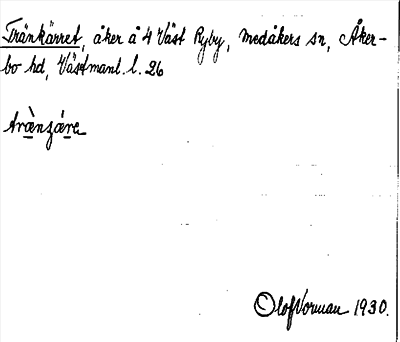 Tränkärret, åker å 4 Väst Ryby, Medåkers sn, Åker-
bo hd, Västmanl. l. 26
trànzáre
Olof Vorman 1930.